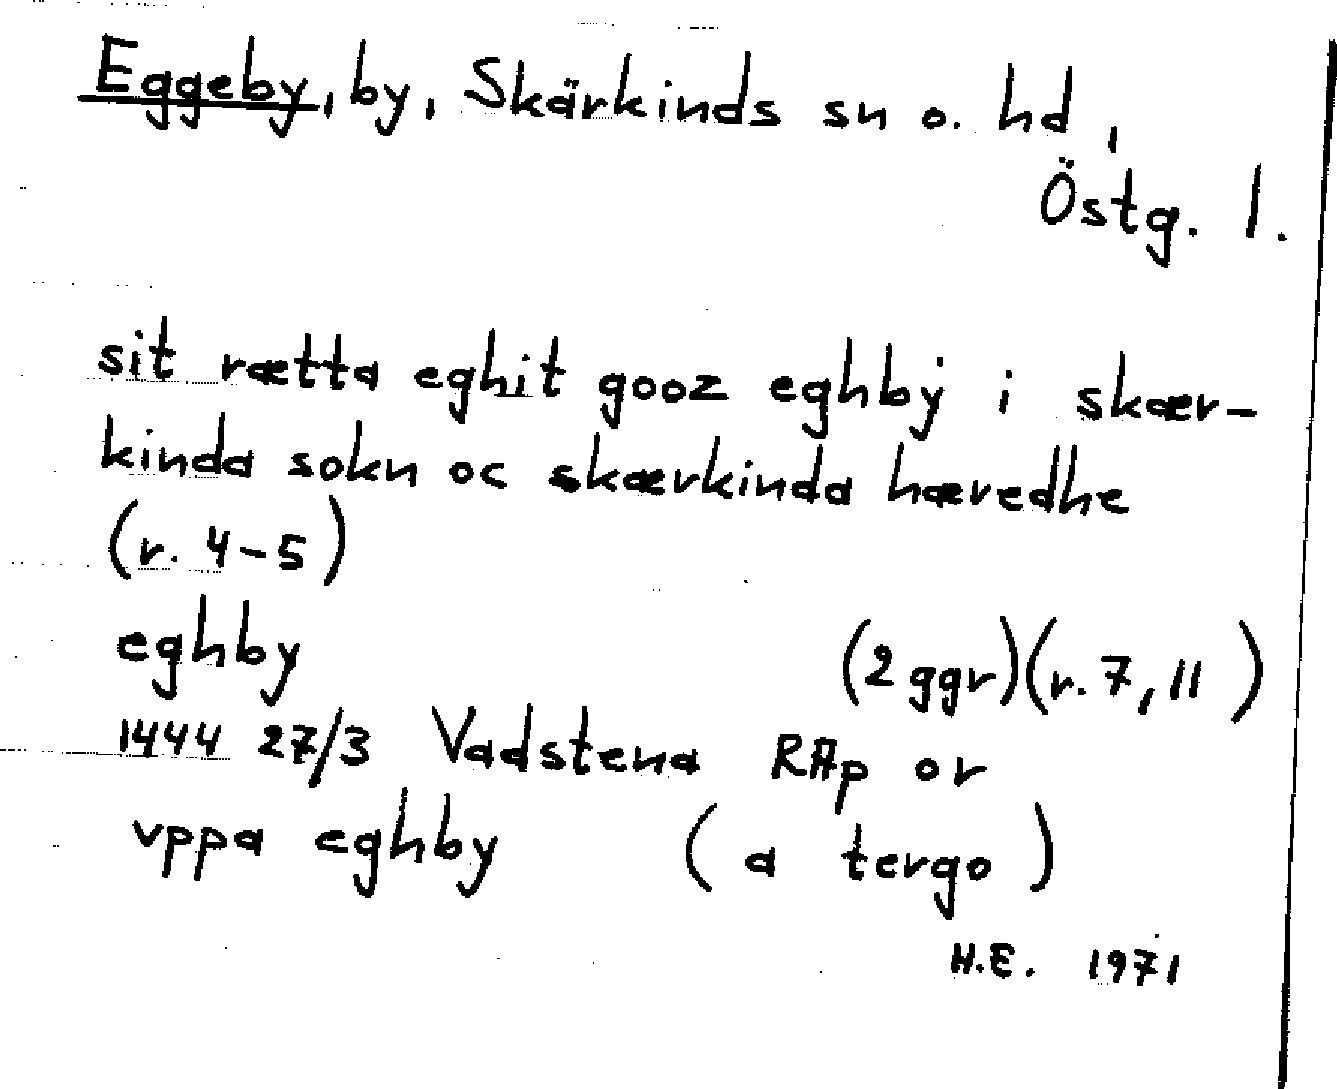 Eggeby, by, Skärkinds sn o. hd,
Östg. l.
sit rætta eghit gooz eghbẏ i skær-
kinda sokn oc skærkinda hæredhe
(r. 4-5)
eghby (2 ggr)(r. 7, 11)
1444 27/3 Vadstena RAp or
vppa eghby (a tergo)
H.E. 1971